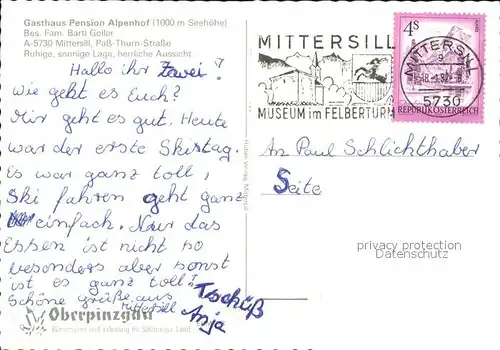 Gasthaus Pension Alpenhof (1000 m Seehöhe)
Bes. Fam. Bartl Goller
A-5730 Mittersill, Paß-Thurn-Straße
Ruhige, sonnige Lage, herrliche Aussicht
Hallo ihr Zwei!
Wie geht es Euch?
Mir geht es gut. Heute
war der erste Skitag.
Es war ganz toll,
Ski fahren geht ganz
einfach. Nur das
Essen ist nicht so
besonders aber sonst
ist es ganz toll!
Schöne grüße aus
Mittersill
Tschüß
Anja
Oberpinzgau
MITTERSILL
MUSEUM im FELBERTURM
4S
REPUBLIK ÖSTERREICH
MITTERSILL
5730
An Paul Schlichthaber
Seite
privacy protection
Datenschutz